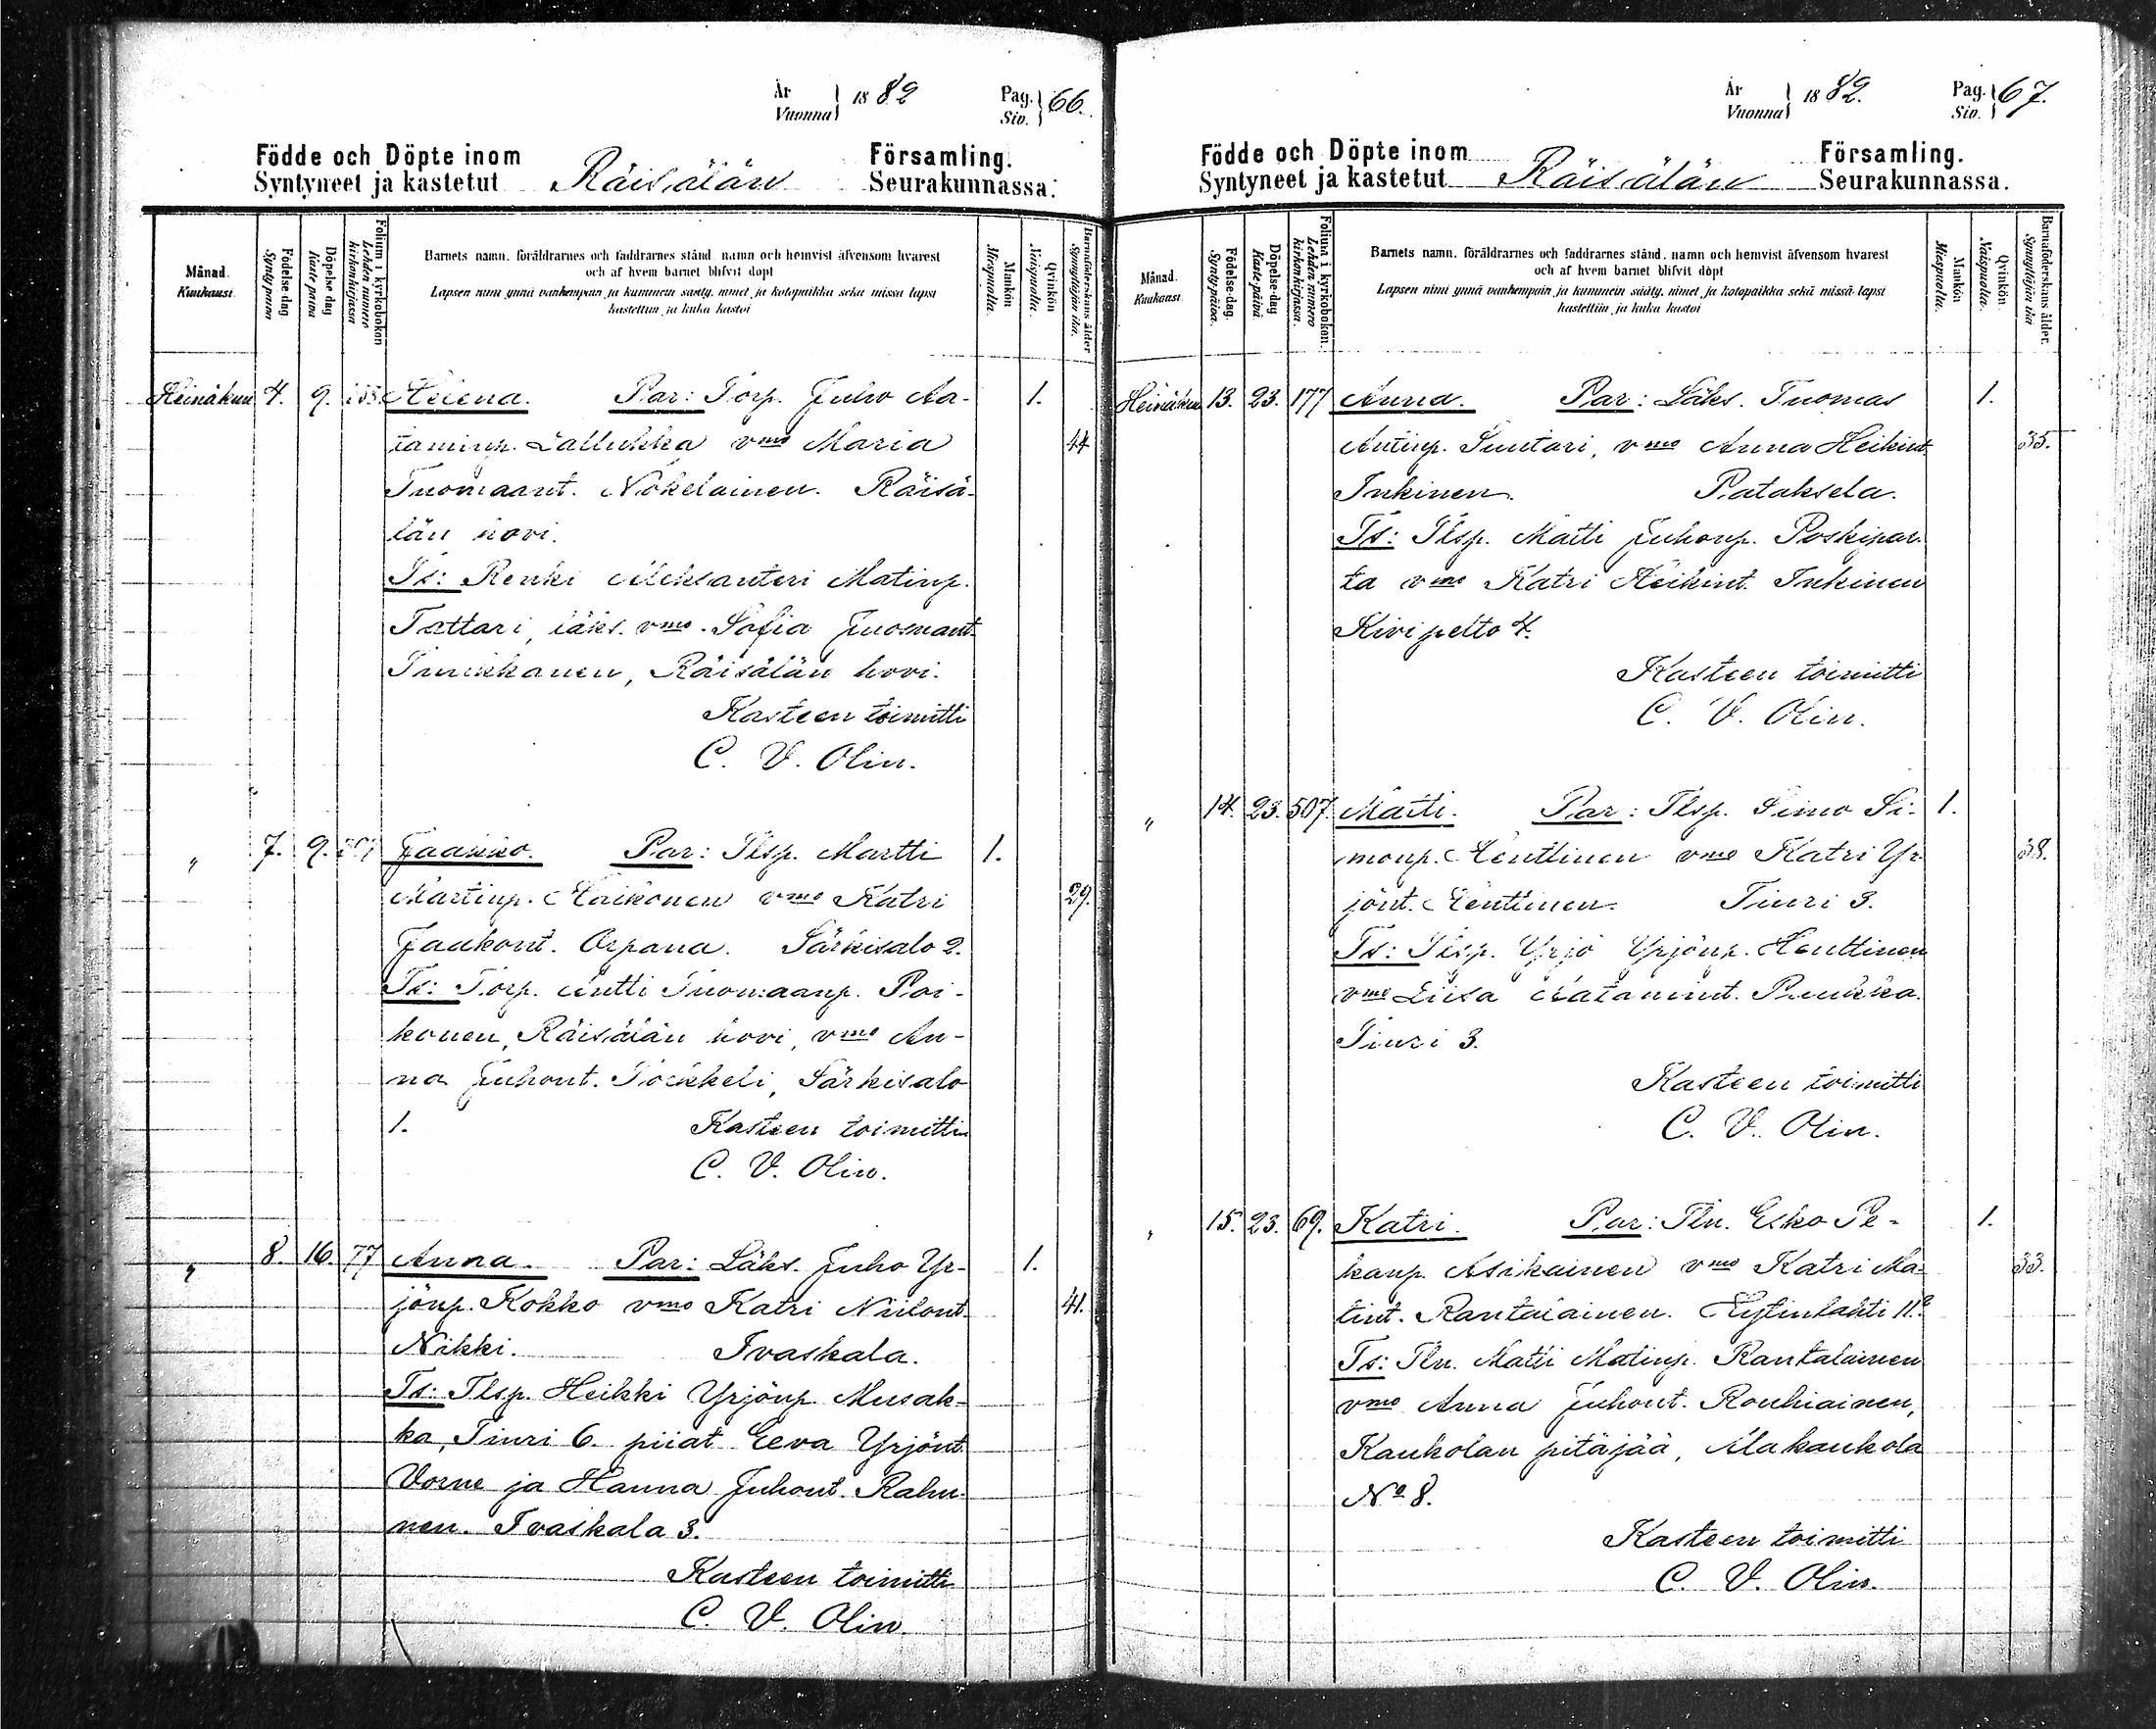 År
Vuonna 1882
Pag.
Siv. 66.
Födde och Döpte inom
Syntyneet ja kastetut Räisälän
Församling.
Seurakunnassa.
Månad.
Kuukausi
Födelse dag.
Synty päivä
Döpelse dag
Kaste-päivä
Folium i kyrkoboken
Lehden numero kirkonkirjassa
Barnets namn, föräldrarnes och faddrarnes stånd, namn och hemvist äfvensom hvarest
och af hvem barnet blifvit döpt
Lapsen nimi ynnä vanhempain ja kummein sääty, nimet ja kotopaikka sekä missä lapsi
kastettiin ja kuka kastoi
Mankön
Miespuolta.
Qvinkön
Naispuolta.
Barnaföderskans ålder
Synnyttäjän ikä.
Heinäkuu 4. 9. Helena. Par: Torp. Juho Aa- 1.
taminp. Lallukka vmo Maria 44
Tuomaant. Nokelainen. Räisä-
län hovi.
Ts: Renki Aleksanteri Matinp.
Tattari, läks. vmo. Sofia Tuomant.
Räisälän hovi.
Kasteen toimitti
C. V. Olin.
" 7. 9. Jaakko. Par: Tlsp. Martti 1.
Martinp. Haikonen vmo Katri 29.
Jaakont. Orpana. Särkisalo 2.
Ts: Torp. Antti Tuomaanp. Poi-
konen, Räisälän hovi, vmo An-
na Juhont. Särkisalo
1. Kasteen toimitti
C. V. Olin.
" 8. 16. 77 Anna. Par: Läks. Juho Yr- 1.
jönp. Kokko vmo Katri Niilont. 41.
Nikki. Ivaskala.
Ts: Tlsp. Heikki Yrjönp. Musak-
ka, Tiuri 6. piiat Eeva Yrjönt.
Vorne ja Hanna Juhont. Rahu-
nen. Ivaskala 3.
Kasteen toimitti
C. V. Olin.
År
Vuonna 1882.
Pag.
Siv. 67.
Födde och Döpte inom
Syntyneet ja kastetut Räisälän
Församling.
Seurakunnassa.
Månad.
Kuukausi
Födelse-dag.
Synty-päivä.
Döpelse-dag
Kaste-päivä.
Folium i kyrkoboken.
Lehden numero kirkonkirjassa.
Barnets namn, föräldrarnes och faddrarnes stånd, namn och hemvist äfvensom hvarest
och af hvem barnet blifvit döpt
Lapsen nimi ynnä vanhempain ja kummein sääty, nimet ja kotopaikka sekä missä lapsi
kastettiin ja kuka kastoi
Mankön
Miespuolta.
Qvinkön
Naispuolta.
Barnaföderskans ålder.
Synnyttäjän ikä
Heinäkuu 13. 23. 177 Anna. Par: Läks. Tuomas 1.
Antinp. Suutari, vmo Anna Heikint. 35.
Inkinen. Pataksela.
Ts: Tlsp. Matti Juhonp. Poskipar-
ta vmo Katri Heikint. Inkinen
Kivipelto 4.
Kasteen toimitti
C. V. Olin.
" 14. 23. 507. Matti. Par: Tlsp. Simo Si- 1.
monp. Henttinen vmo Katri Yr- 38.
jönt. Henttinen. Tiuri 3.
Ts: Tlsp. Yrjö Yrjönp. Henttinen
vmo Liisa Aatamint. Puukka.
Tiuri 3.
Kasteen toimitti
C. V. Olin.
" 15. 23. 69. Katri. Par: Tln. Esko Pe- 1.
kanp. Asikainen vmo Katri Ma- 33.
tint. Rantalainen. Hytinlahti 11.
Ts: Tln. Matti Matinp. Rantalainen
vmo Anna Juhont. Rouhiainen,
Kaukolan pitäjää, Alakaukola
No 8.
Kasteen toimitti
C. V. Olin.